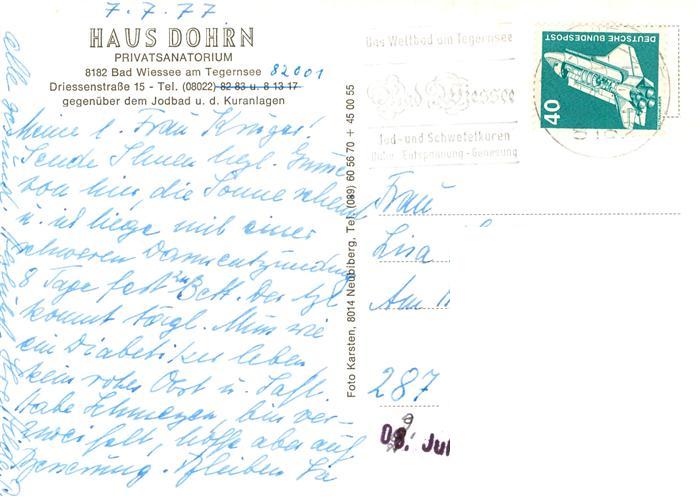 7.7.77
HAUS DOHRN
PRIVATSANATORIUM
8182 Bad Wiessee am Tegernsee 82001
Driessenstraße 15 - Tel. (08022) 82 83 u. 8 13 17
gegenüber dem Jodbad u. d. Kuranlagen
Meine l. Frau Krüger!
Sende Ihnen hzgl. Grüsse
von hier, die Sonne scheint
u. ich liege mit einer
schweren Darmentzündung
8 Tage fest zu Bett. Der Arzt
kommt tägl. Muss wie
ein Diabetiker leben
kein rohes Obst u. Saft.
Habe Schmerzen, bin ver-
zweifelt, hoffe aber auf
Besserung. Bleiben Sie
alle gesund, herzlichst
Foto Karsten, 8014 Neubiberg, Tel. (089) 60 56 70 + 45 00 55
Das Weltbad am Tegernsee
Bad Wiessee
Jod- und Schwefelkuren
Ruhe - Entspannung - Genesung
DEUTSCHE BUNDESPOST
40
Frau
Lisa
Am
287
08. Jul